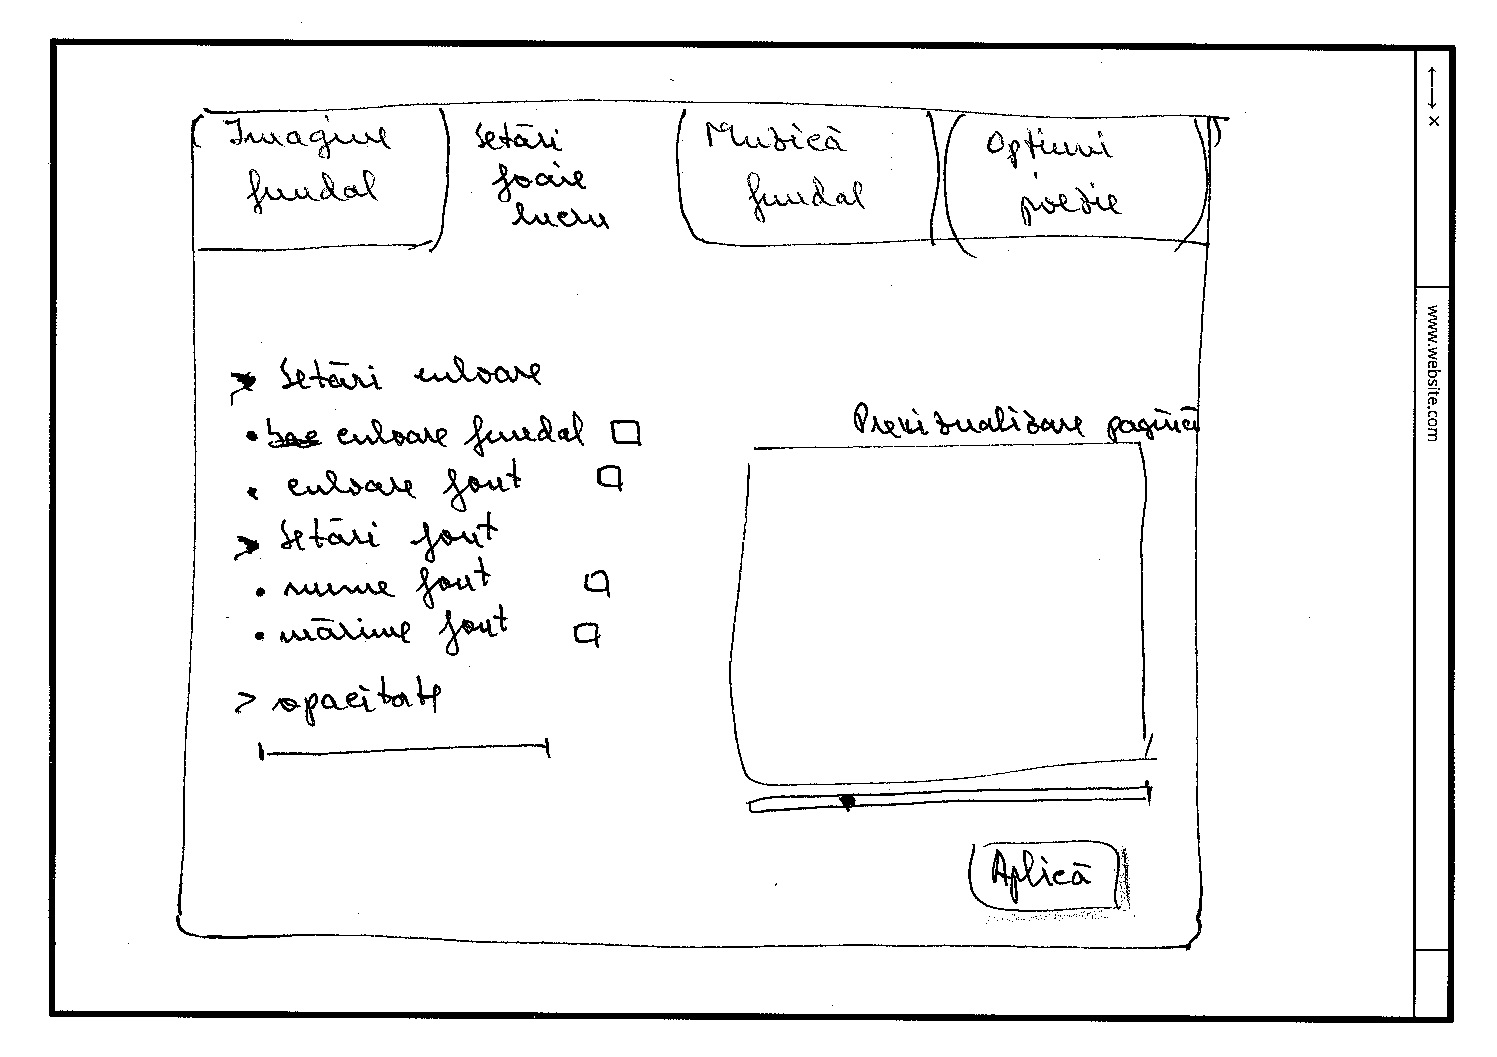 Imagine
fundal
Setări
foaie
lucru
Muzică
fundal
Opțiuni
poezie
> Setări culoare
• culoare fundal
• culoare font
> Setări font
• nume font
• mărime font
> opacitate
Previzualizare pagină
Aplică
www.website.com